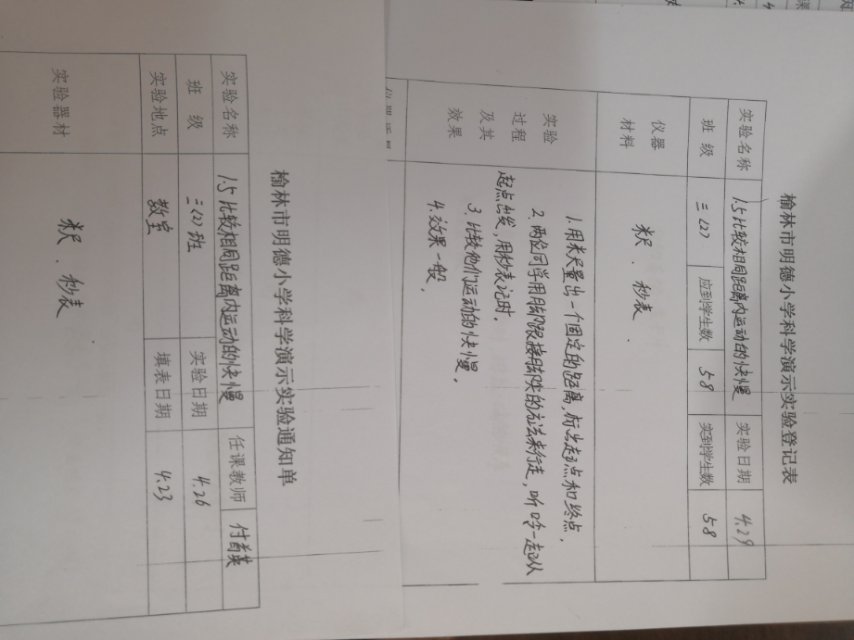 榆林市明德小学科学演示实验登记表
实验名称 1.5比较相同距离内运动的快慢 实验日期 4.29
班级 三(2) 应到学生数 58 实到学生数 58
仪器材料 米尺、秒表
实验过程及其效果
1.用米尺量出一个固定的距离,标出起点和终点,
2.两位同学用脚跟接脚尖的方法来行走,听口令一起从
起点出发,用秒表记时。
3.比较他们运动的快慢。
4.效果一般。
榆林市明德小学科学演示实验通知单
实验名称 1.5比较相同距离内运动的快慢 任课教师
班级 三(2)班 实验日期 4.26
实验地点 教室 填表日期 4.23
实验器材 米尺、秒表